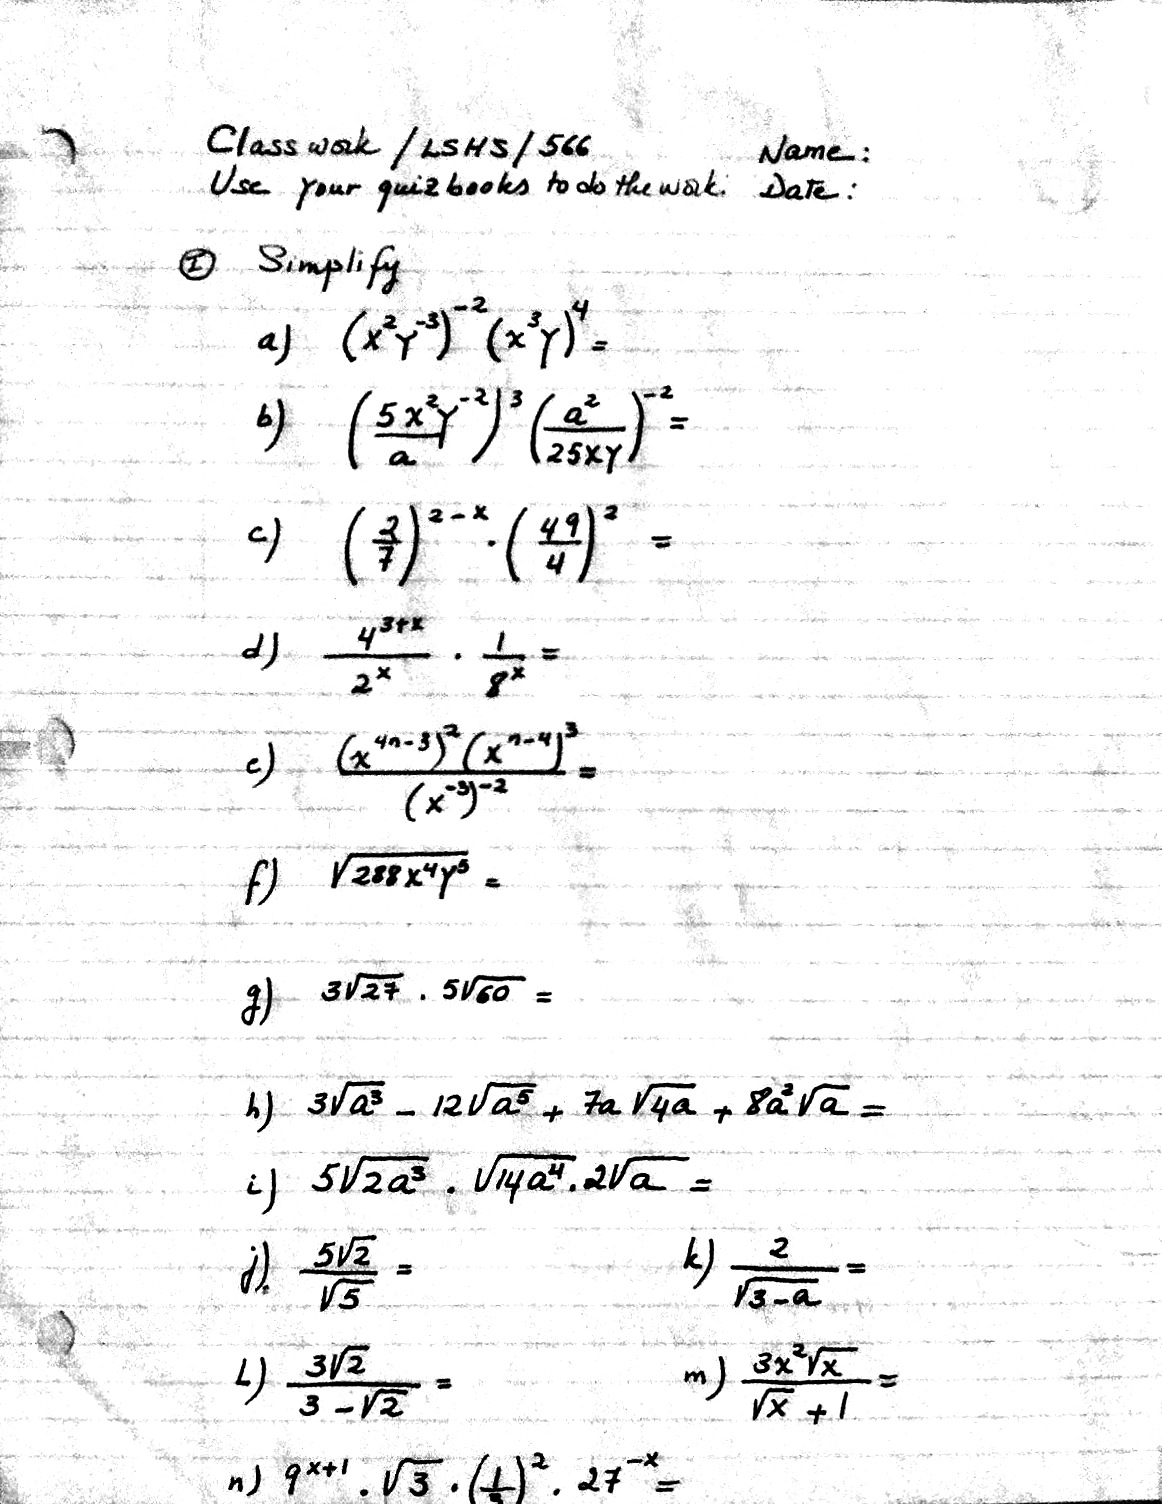 Classwork / LSHS / 566 Name:
Use your quizbooks to do the work. Date:
Ⓘ Simplify
a) (x²y⁻³)⁻² (x³y)⁴ =
b) (5x²y⁻²/a)³ (a²/25xy)⁻² =
c) (2/7)²⁻ˣ · (49/4)² =
d) 4³⁺ˣ/2ˣ · 1/8ˣ =
e) (x⁴ⁿ⁻³)² (xⁿ⁻⁴)³/(x⁻³)⁻² =
f) √(288x⁴y⁵) =
g) 3√27 · 5√60 =
h) 3√a³ - 12√a⁵ + 7a√4a + 8a²√a =
i) 5√2a³ · √14a⁴ · 2√a =
j) 5√2/√5 = k) 2/√(3-a) =
L) 3√2/(3-√2) = m) 3x²√x/(√x+1) =
n) 9ˣ⁺¹ · √3 · (1/3)² · 27⁻ˣ =